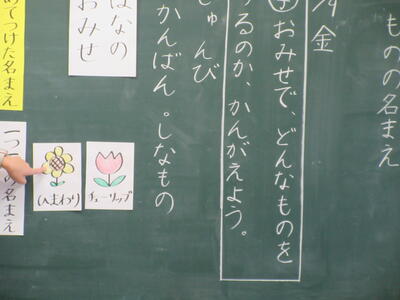 ものの名まえ
金
おみせで、どんなものを
るのか、かんがえよう。
じゅんび
かんばん。しなもの
はなの
おみせ
チューリップ
ひまわり
めてつけた名まえ
名まえ